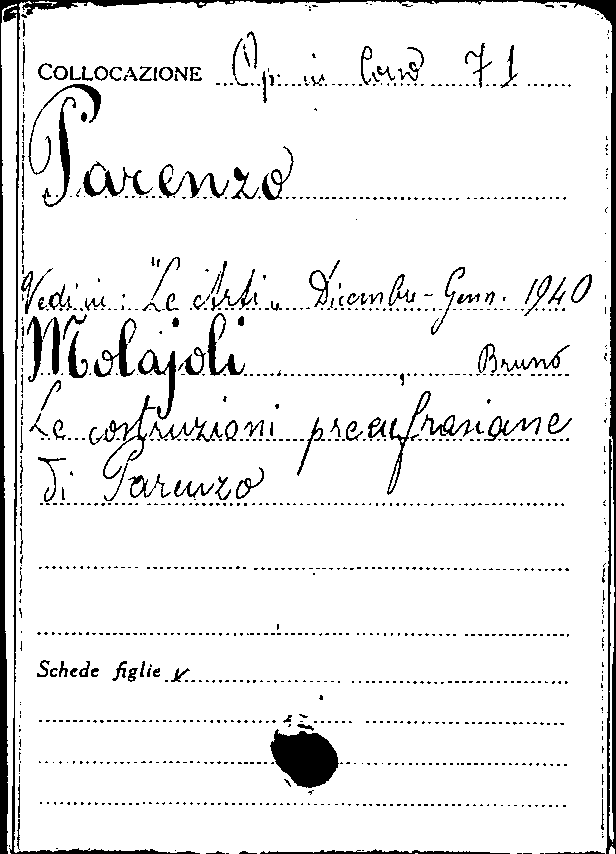 COLLOCAZIONE Op. in Corso 71
Parenzo
Vedi in: "Le Arti„ Dicembre-Genn. 1940
Molajoli, Bruno
Le costruzioni preeufrasiane
di Parenzo
Schede figlie ✓